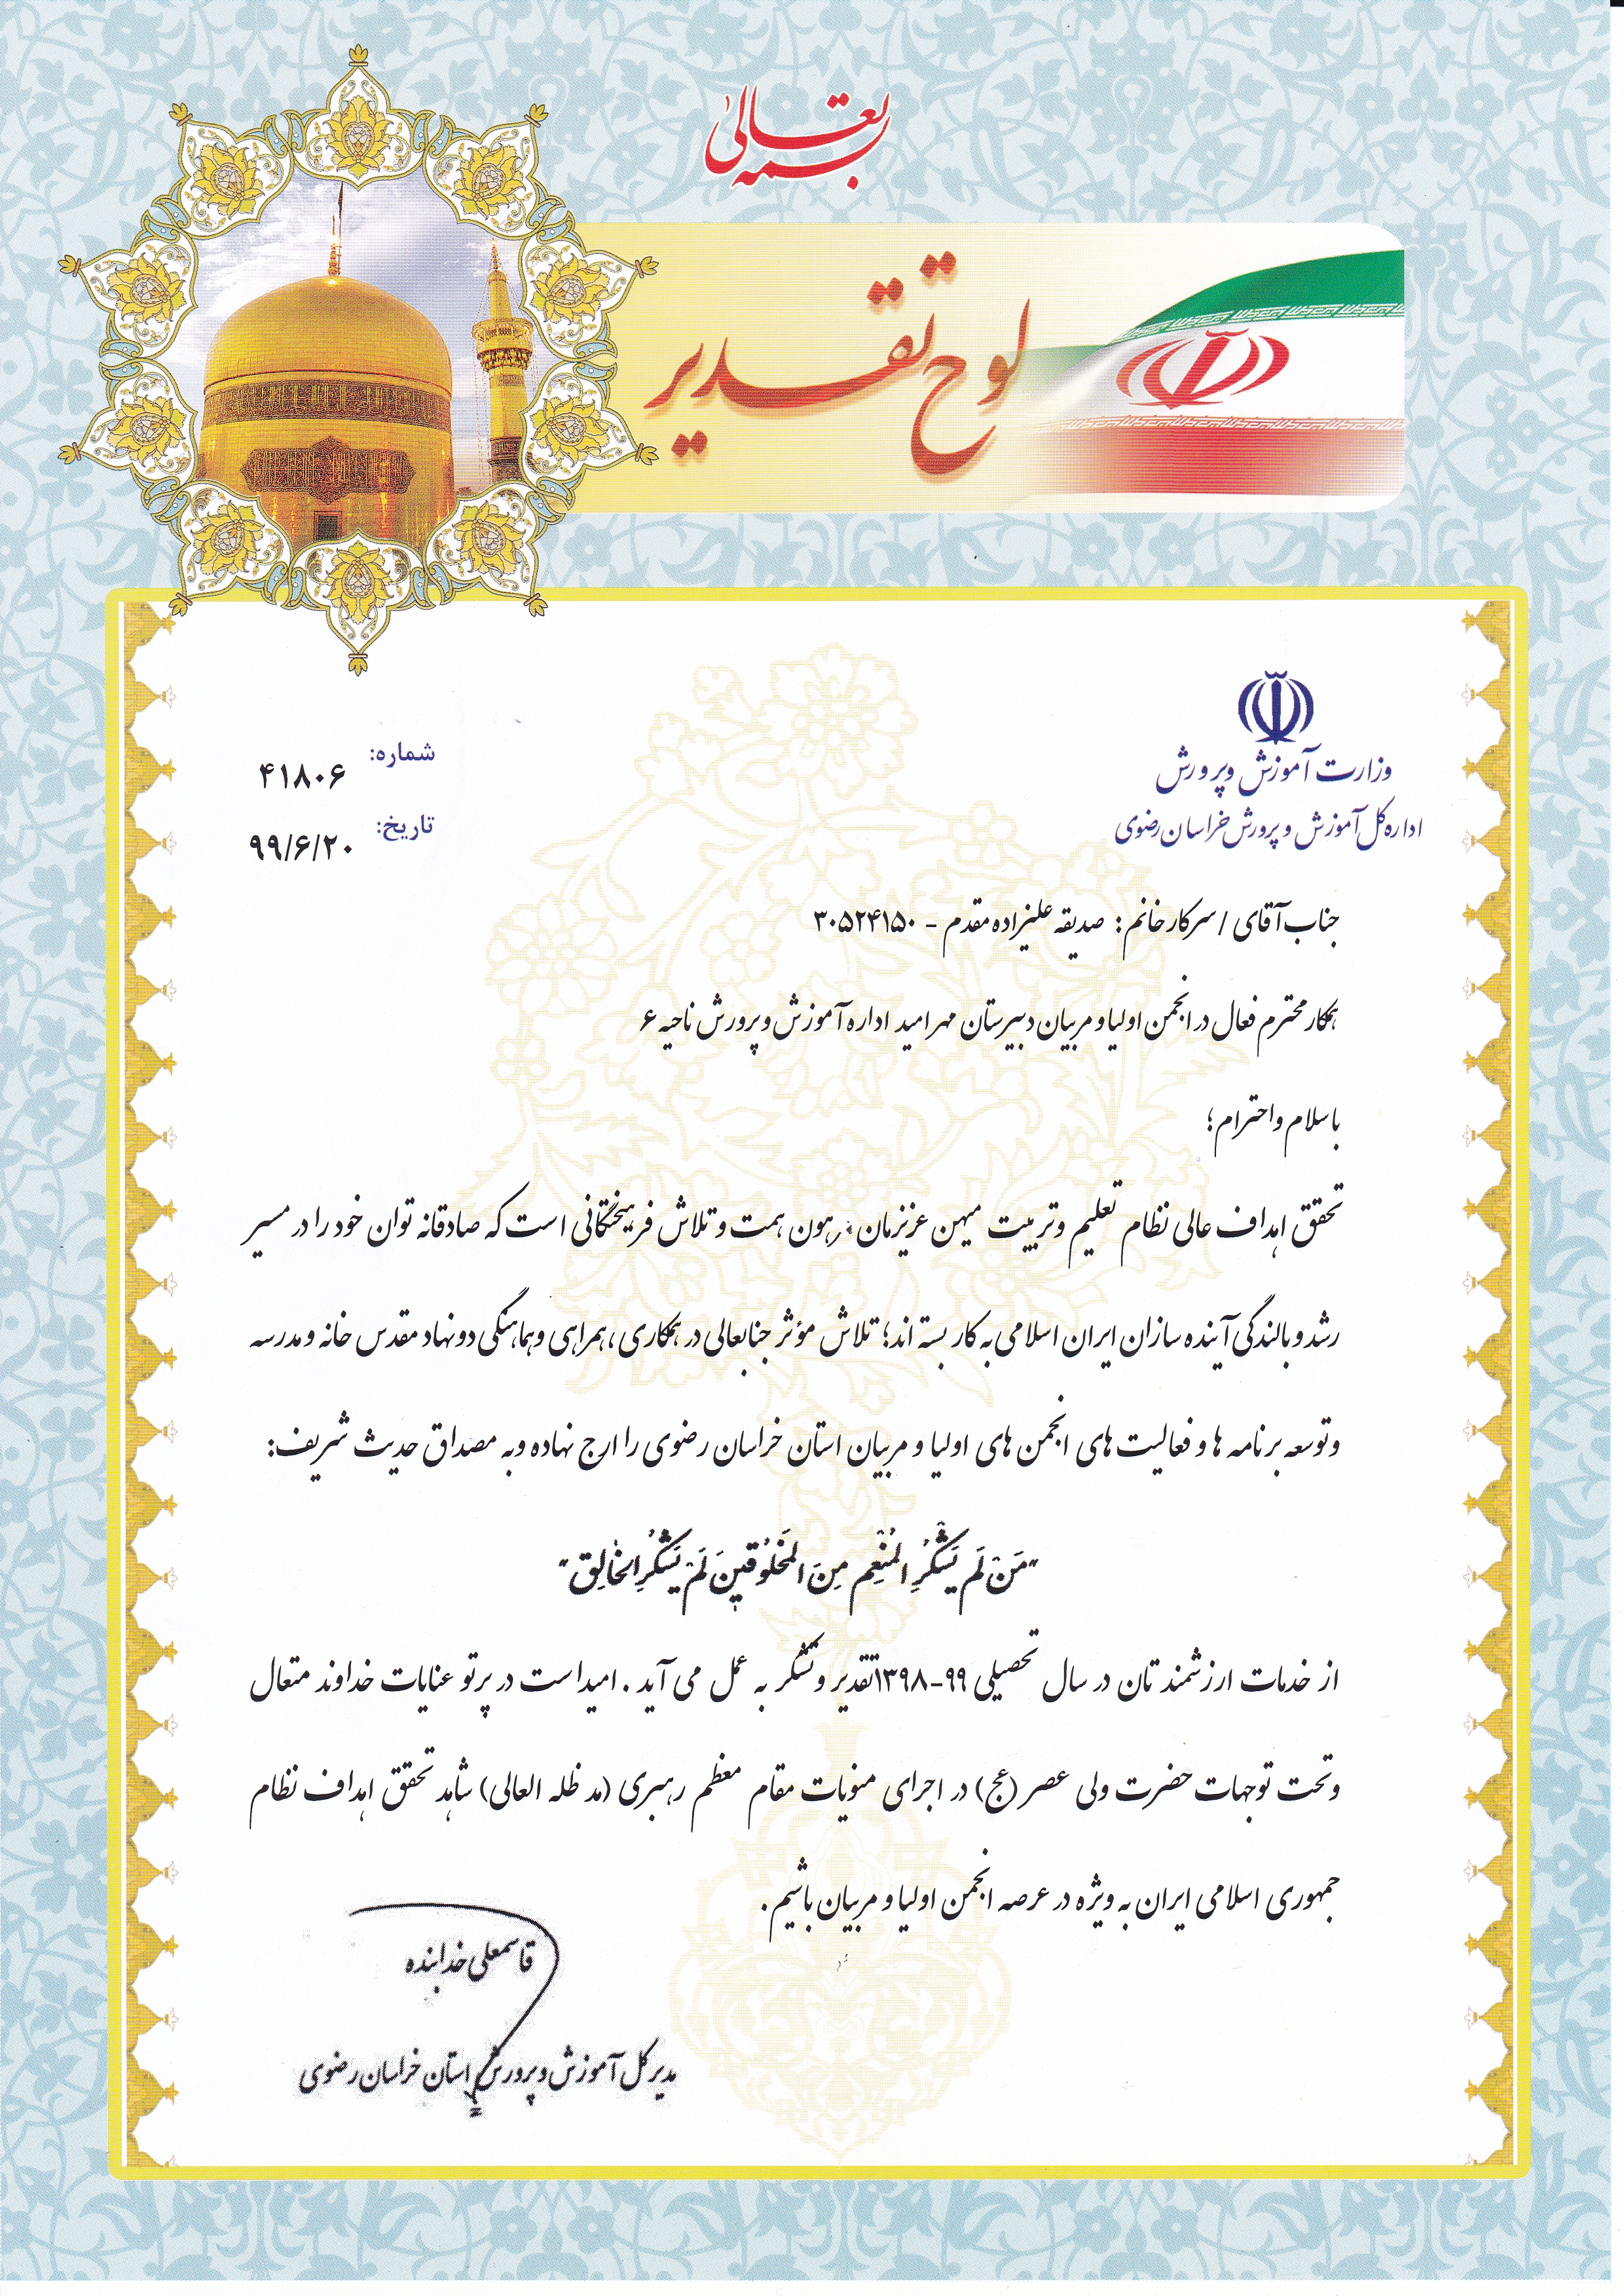 بسمه تعالی
لوح تقدیر
وزارت آموزش و پرورش
اداره کل آموزش و پرورش خراسان رضوی
شماره: ۴۱۸۰۶
تاریخ: ۹۹/۶/۲۰
جناب آقای / سرکار خانم : صدیقه علیزاده مقدم - ۳۰۵۲۴۱۵۰
همکار محترم فعال در انجمن اولیا و مربیان دبیرستان مهر امید اداره آموزش و پرورش ناحیه ۶
با سلام و احترام؛
تحقق اهداف عالی نظام تعلیم و تربیت میهن عزیزمان مرهون همت و تلاش فرهیختگانی است که صادقانه توان خود را در مسیر
رشد و بالندگی آینده سازان ایران اسلامی به کار بسته اند؛ تلاش مؤثر جنابعالی در همکاری ، همراهی و هماهنگی دو نهاد مقدس خانه و مدرسه
و توسعه برنامه ها و فعالیت های انجمن های اولیا و مربیان استان خراسان رضوی را ارج نهاده و به مصداق حدیث شریف:
"مَنْ لَم يَشْكُرِ المُنْعِم مِنَ المَخلُوقينَ لَمْ يَشْكُرِ الخالِق"
از خدمات ارزشمندتان در سال تحصیلی ۹۹-۱۳۹۸ تقدیر و تشکر به عمل می آید . امید است در پرتو عنایات خداوند متعال
و تحت توجهات حضرت ولی عصر (عج) در اجرای منویات مقام معظم رهبری (مد ظله العالی) شاهد تحقق اهداف نظام
جمهوری اسلامی ایران به ویژه در عرصه انجمن اولیا و مربیان باشیم.
قاسمعلی خدابنده
مدیر کل آموزش و پرورش استان خراسان رضوی